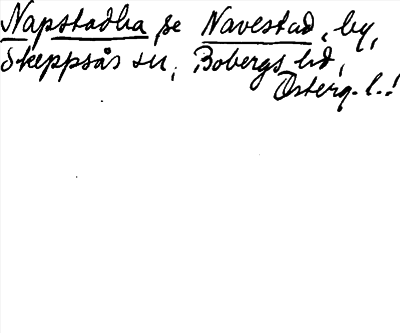 Napstadha se Navestad, by,
Skeppsås sn, Bobergs hd,
Österg. l.!